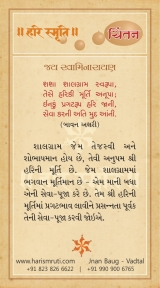 ॥ હરિ સ્મૃતિ ॥
ચિંતન
જય સ્વામિનારાયણ
શક્ષા શાલગ્રામ સ્વરૂપા,
તેસે હરિકી મૂર્તિ અનુપા;
ઈનકું પ્રગટરૂપ હરિ જાની,
સેવા કરની અતિ મુદ આની.
(બાવન અક્ષરી)
શાલગ્રામ જેમ તેજસ્વી અને
શોભાયમાન હોય છે, તેવી અનુપમ શ્રી
હરિની મૂર્તિ છે. જેમ શાલગ્રામમાં
ભગવાન મૂર્તિમાન છે - એમ માની બધા
એની સેવા-પૂજા કરે છે. તેમ શ્રી હરિની
મૂર્તિમાં પ્રગટભાવ લાવીને પ્રસન્નતા પૂર્વક
તેની સેવા-પૂજા કરવી જોઈએ.
www.harismruti.com
+91 823 826 6622
Jnan Baug - Vadtal
+91 990 900 6765